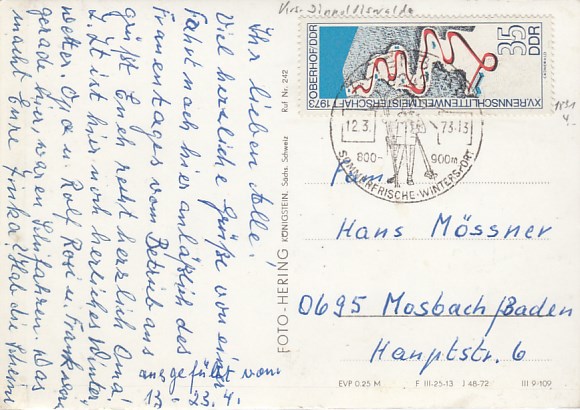 Krs. Dippoldiswalde
Ihr lieben Alle!
Viel herzliche Grüße von einer
Fahrt nach hier anläßlich des
Frauentages vom Betrieb aus
grüßt Euch recht herzlich Oma!
z. Zt. ist hier noch herrliches Winter
wetter. Opa u. Rolf Rosi u. Frank
gerade hier, waren Skifahren. Das
macht Eure Hab die
ausgefüllt vom
13. 23.4.
FOTO-HERING KÖNIGSTEIN, Sächs. Schweiz Ruf Nr. 242
XV. RENNSCHLITTENWELTMEISTERSCHAFT 1973
OBERHOF/DDR
35 DDR
12.3. 73-13
800- 900m
SOMMERFRISCHE · WINTERSPORT
4.-
Fam.
Hans Mössner
0695 Mosbach/Baden
Hauptstr. 6
EVP 0.25 M F III-25-13 J 48-72 III 9/109